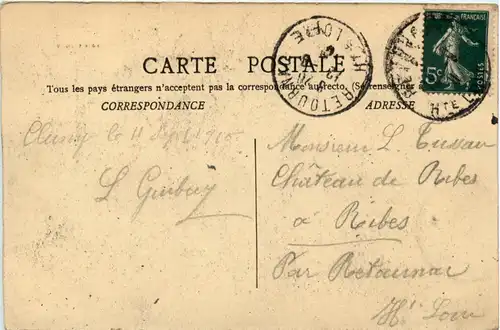 CARTE POSTALE
Tous les pays étrangers n'acceptent pas la correspondance au recto. (Se renseigner
CORRESPONDANCE
ADRESSE
RETOURNA
HTE LOIRE
FRANÇAISE
5c
POSTES
HTE L
Cluny le 11 Sept 1910
L
Monsieur L. Tussau
Château de Ribes
à Ribes
Par Retournac
Hte Loire